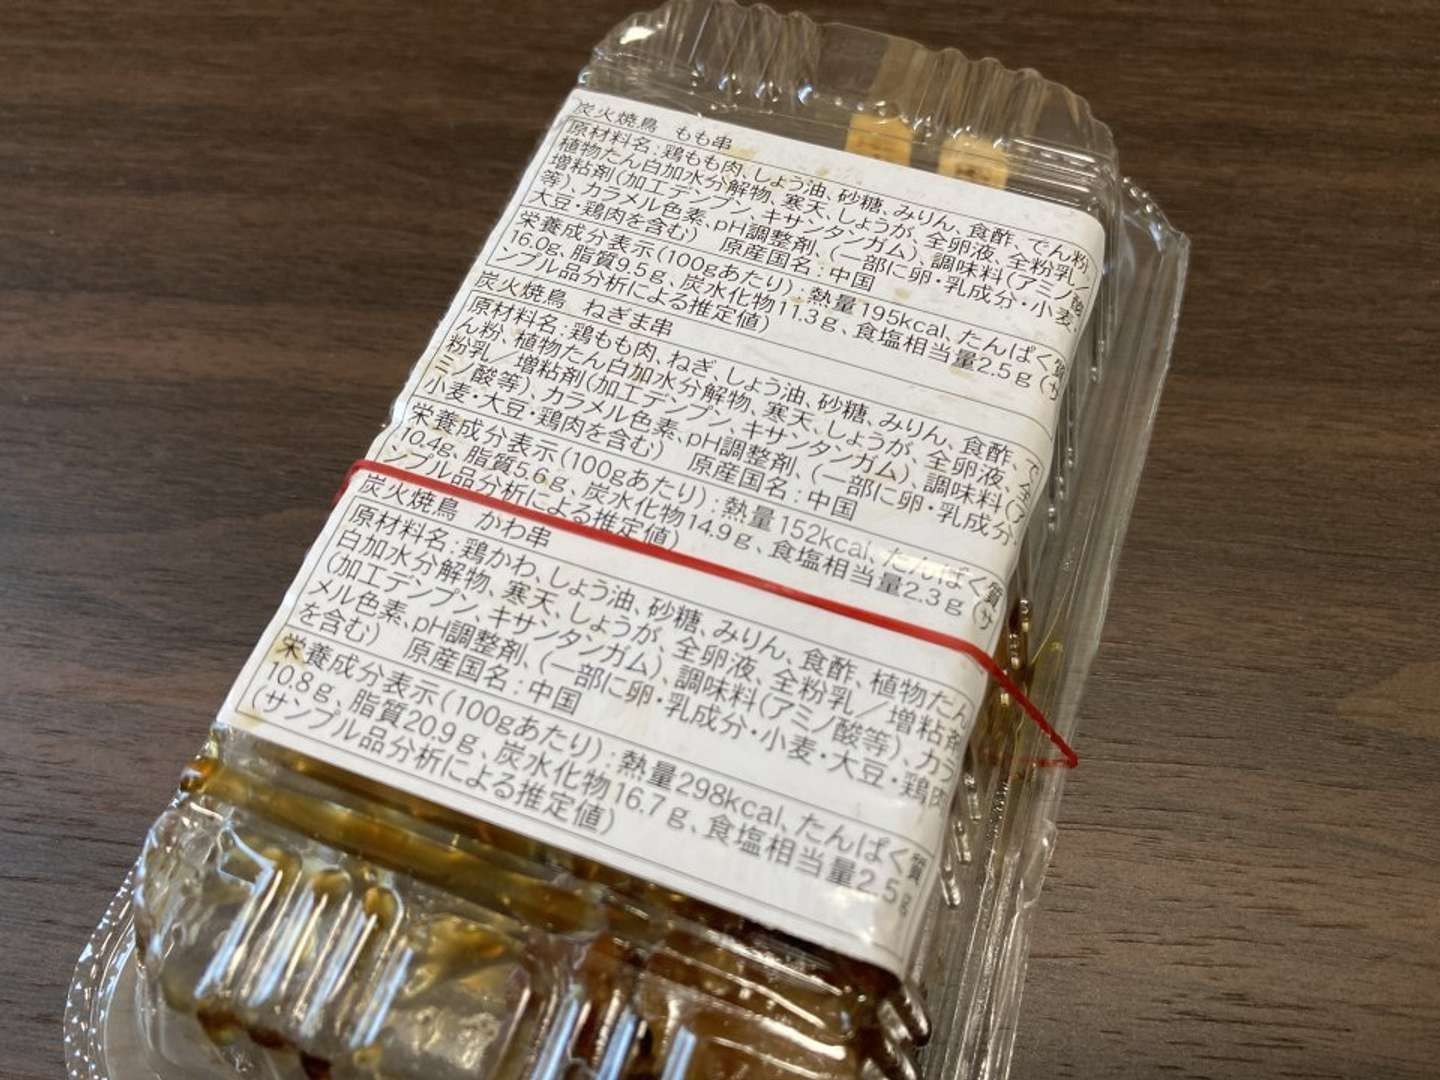 炭火焼鳥 もも串
原材料名：鶏もも肉、しょう油、砂糖、みりん、食酢、でん粉、
植物たん白加水分解物、寒天、しょうが、全卵液、全粉乳／
増粘剤(加工デンプン、キサンタンガム)、調味料(アミノ酸
等)、カラメル色素、pH調整剤、(一部に卵・乳成分・小麦・
大豆・鶏肉を含む) 原産国名：中国
栄養成分表示(100gあたり)：熱量195kcal、たんぱく質
16.0g、脂質9.5g、炭水化物11.3g、食塩相当量2.5g(サ
ンプル品分析による推定値)
炭火焼鳥 ねぎま串
原材料名：鶏もも肉、ねぎ、しょう油、砂糖、みりん、食酢、で
ん粉、植物たん白加水分解物、寒天、しょうが、全卵液、全
粉乳／増粘剤(加工デンプン、キサンタンガム)、調味料(ア
ミノ酸等)、カラメル色素、pH調整剤、(一部に卵・乳成分・
小麦・大豆・鶏肉を含む) 原産国名：中国
栄養成分表示(100gあたり)：熱量152kcal、たんぱく質
10.4g、脂質5.6g、炭水化物14.9g、食塩相当量2.3g(サ
ンプル品分析による推定値)
炭火焼鳥 かわ串
原材料名：鶏かわ、しょう油、砂糖、みりん、食酢、植物たん
白加水分解物、寒天、しょうが、全卵液、全粉乳／増粘剤
(加工デンプン、キサンタンガム)、調味料(アミノ酸等)、カラ
メル色素、pH調整剤、(一部に卵・乳成分・小麦・大豆・鶏肉
を含む) 原産国名：中国
栄養成分表示(100gあたり)：熱量298kcal、たんぱく質
10.8g、脂質20.9g、炭水化物16.7g、食塩相当量2.5g
(サンプル品分析による推定値)